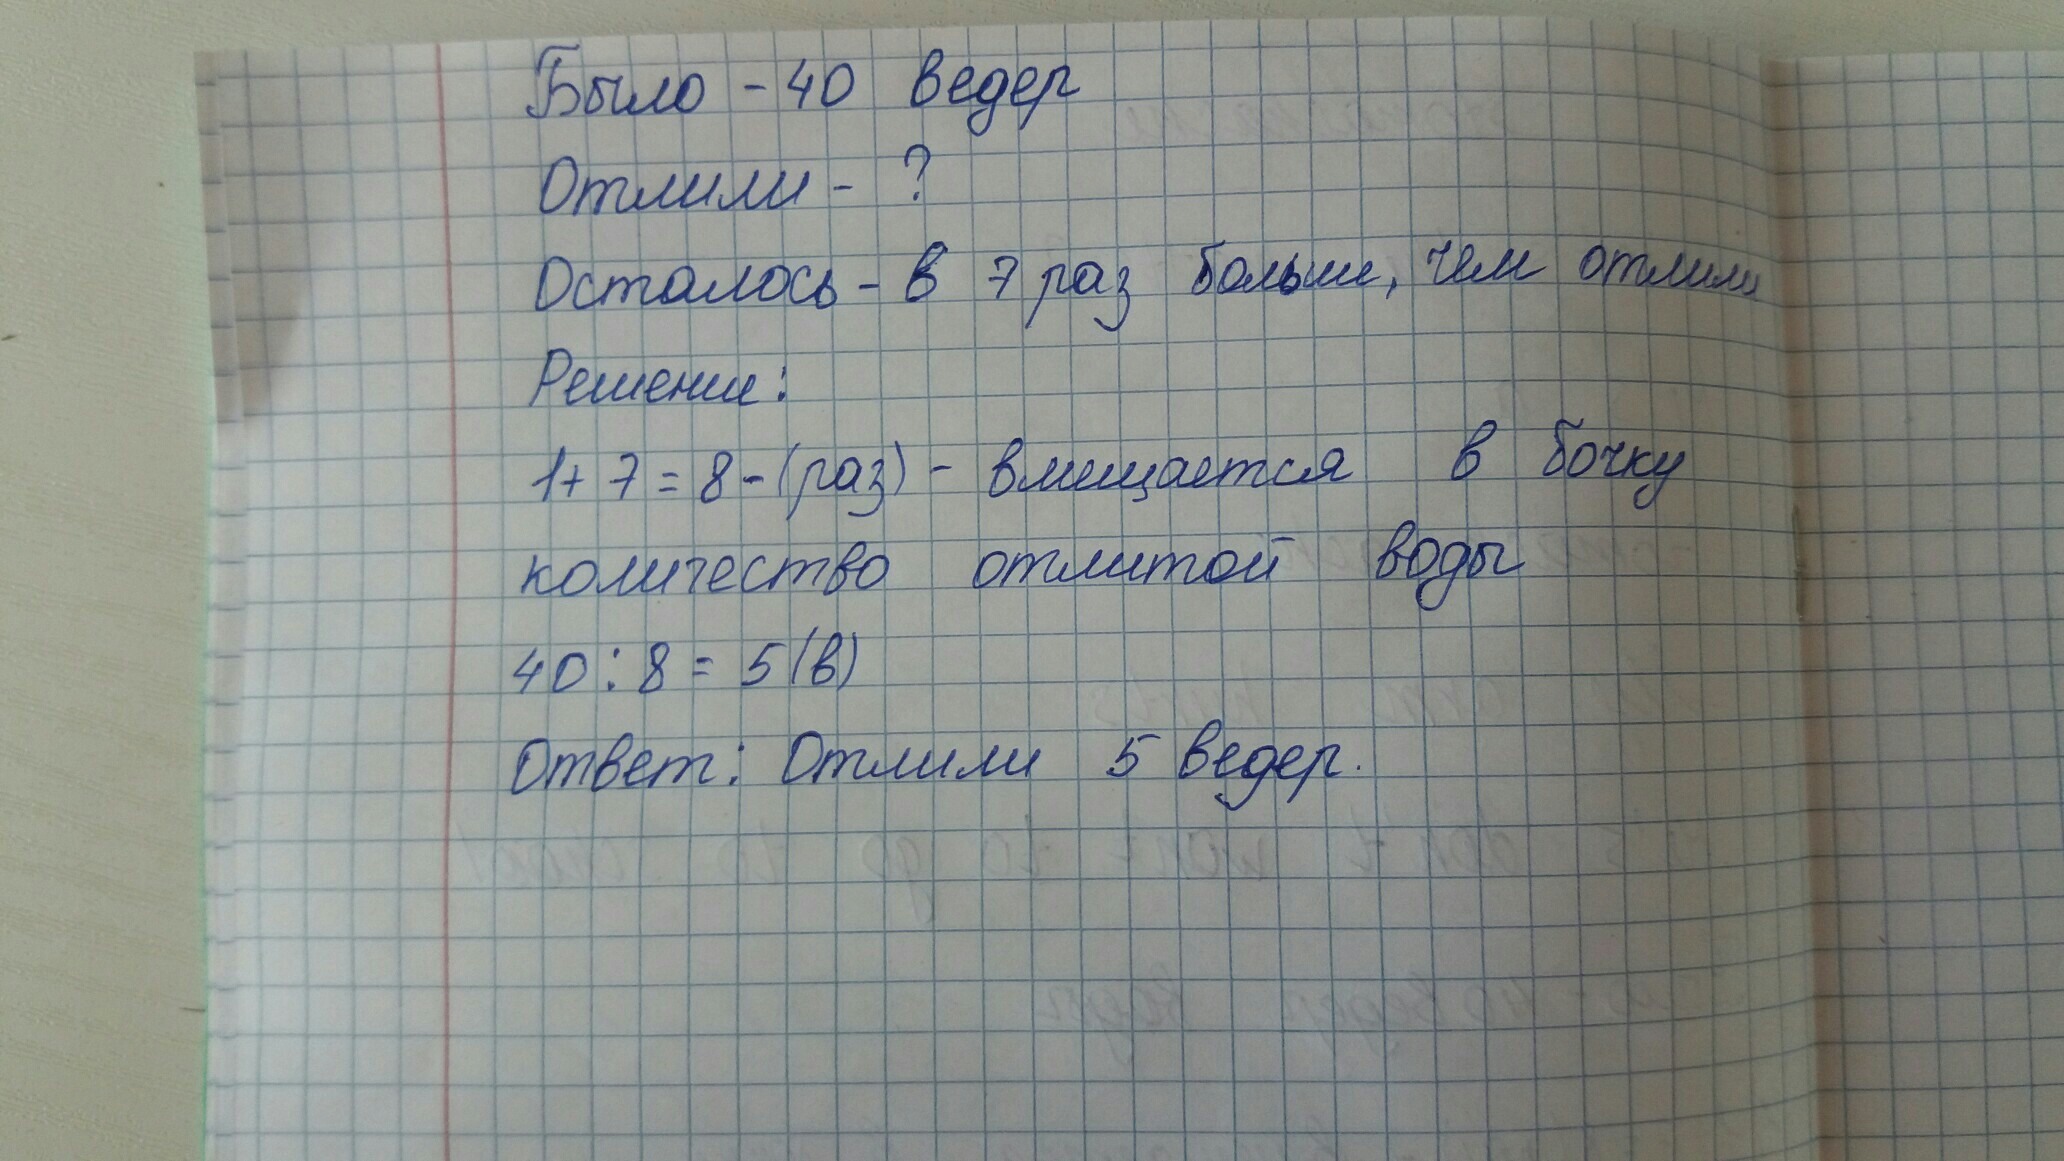 Было - 40 ведер
Отлили - ?
Осталось - в 7 раз больше, чем отлили
Решение:
1 + 7 = 8 - (раз) - вмещается в бочку
количество отлитой воды
40 : 8 = 5 (в)
Ответ: Отлили 5 ведер.